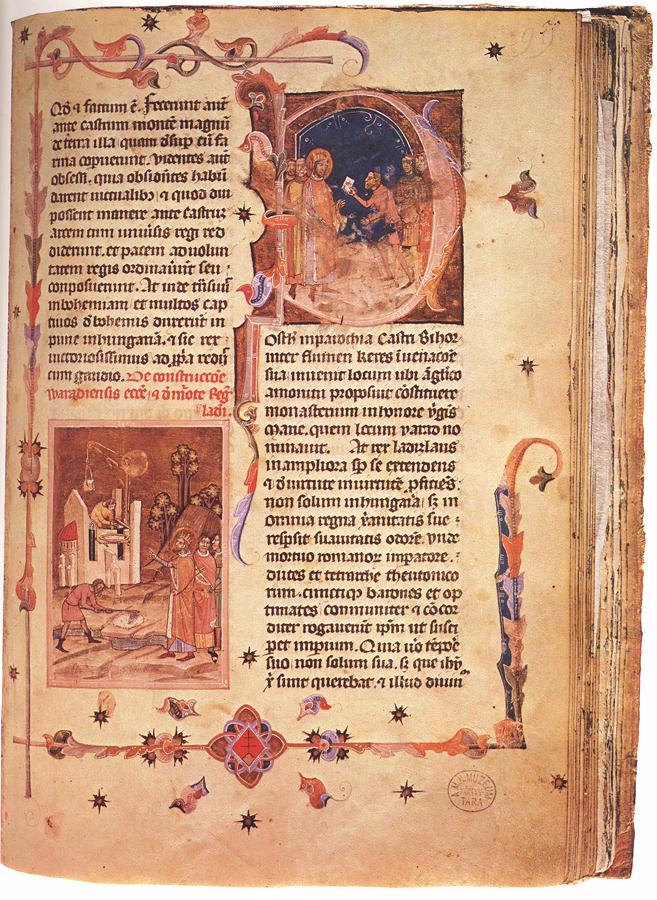 Qd & factum ē. Fecerunt aut
ante castrum montē magnū
de terra illa quam dſup eū fa
rina copuerunt. Videntes aut
obseſſi. quia obsidiōnes habū
darent victualibꝫ & quod diu
possent manere ante castrū
arcem cum universis regi red
diderunt. et pacem ad volun
tatem regis ordinaverūt seu
conposuerunt.
in bohemiam et multos cap
tivos d bohemis duxerūt in
& sic rex
victoriosissimus ad redi
cum gaudio. De constructiōe
waradiensis eccē. & d morte Reg
ladi.
Ost hͦ in parochia Castri Bihor
inter fluvium Keres in venacōe
sua invenit locum ubi āglico
amonitu proposuit cōstituere
monasterium in honore vgīs
Marie. quem locum varad no
minavit. At rex ladizlaus
in ampliora sp̄ se extendens
& d virtute in virtutē pficiēs
non solum in hungaria sꝫ in
omnia regna xp̄ianitatis sue
respsit suavitatis odorē. Vnde
mortuo romanorꝫ impatore.
duces et tetrarche theutonico
rum. cunctiqꝫ barones et op
timates communiter & cōcor
diter rogaverūt ipm ut susci
pet impium. Qui vō tēpoe
suo non solum sua. sꝫ que ihū
xp̄i sunt querebat. & illud
MUZEUM
TARA